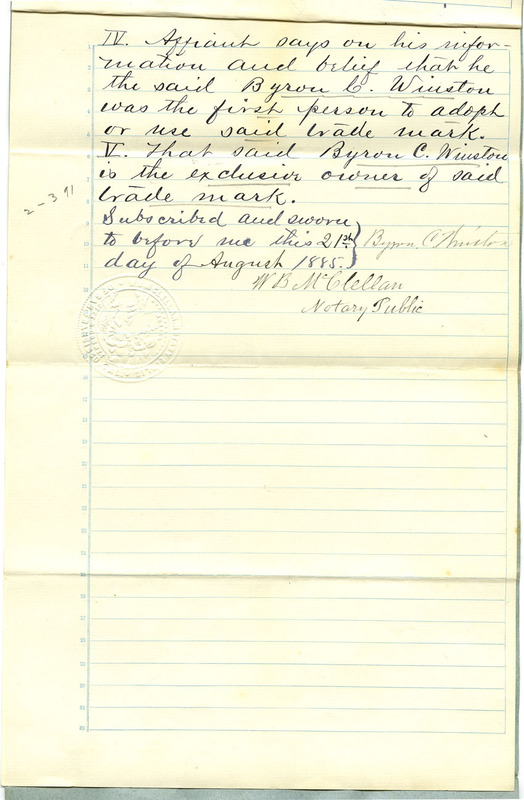 IV. Affiant says on his infor-
mation and belief that he
the said Byron C. Winston
was the first person to adopt
or use said trade mark.
V. That said Byron C. Winston
is the exclusive owner of said
trade mark.
Subscribed and sworn
to before me this 21st } Byron C Winston
day of August 1885.
W B McClellan
Notary Public